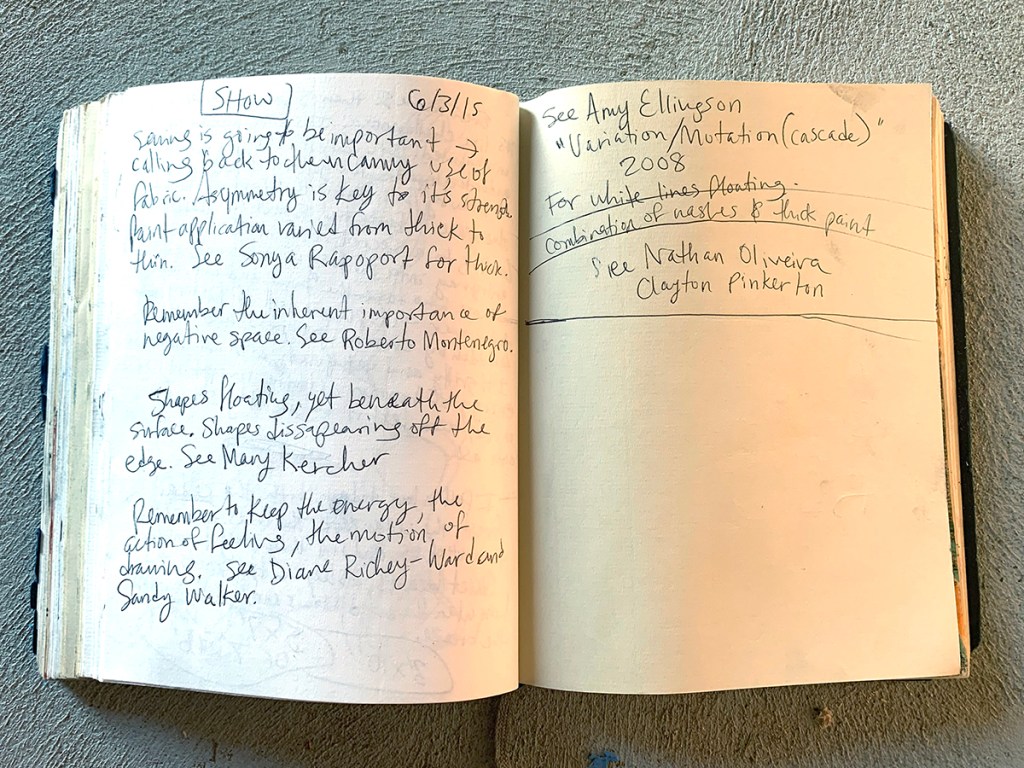 SHOW 6/3/15
sewing is going to be important →
calling back to the uncanny use of
fabric. Asymmetry is key to it's strength
Paint application varied from thick to
thin. See Sonya Rapoport for thick.
Remember the inherent importance of
negative space. See Roberto Montenegro.
Shapes floating, yet beneath the
surface. Shapes dissapearing off the
edge. See Mary Kercher
Remember to keep the energy, the
action of feeling, the motion, of
drawing. See Diane Richey-Ward and
Sandy Walker.
See Amy Ellingson
"Variation/Mutation (cascade)"
2008
For white lines floating.
combination of washes & thick paint
See Nathan Oliveira
Clayton Pinkerton